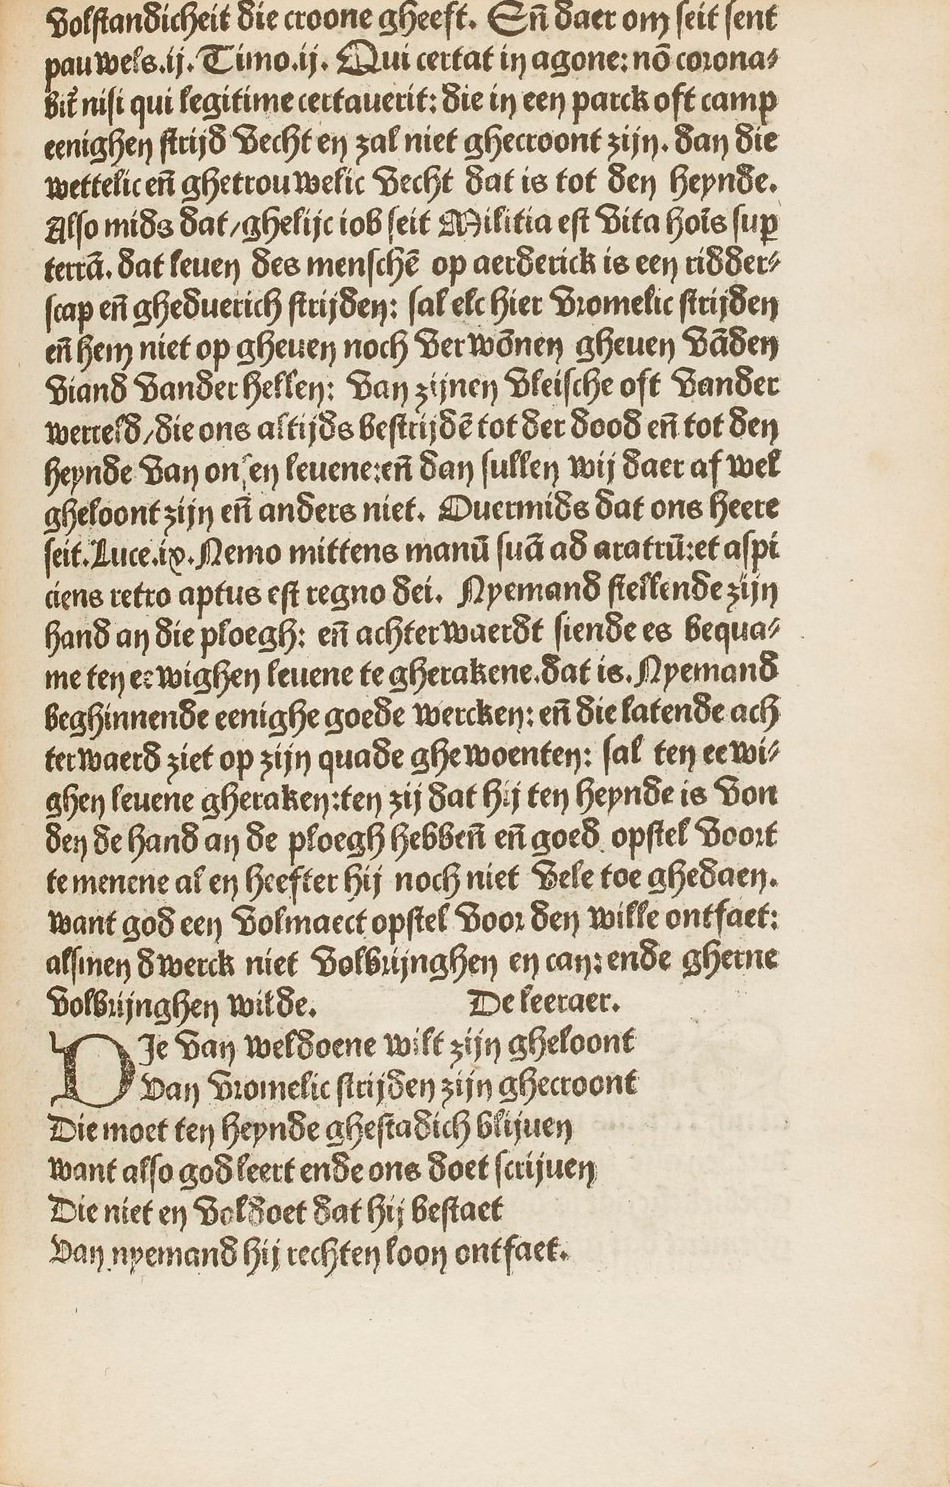 volstandicheit die croone gheeft. Eñ daer om seit sent
pauwels.ij.Timo.ij. Qui certat in agone: nō corona⸗
bit᷑ nisi qui legitime certauerit: die in een parck oft camp
eenighen strijd vecht en zal niet ghecroont zijn. dan die
wettelic eñ ghetrouwelic vecht dat is tot den heynde.
Also mids dat/ghelijc iob seit Militia est vita hoīs suꝑ
terrā. dat leuen des menschē op aerderick is een ridder⸗
scap eñ gheduerich strijden: sal elc hier vromelic strijden
eñ hem niet op gheuen noch verwōnen gheuen vādden
viand vander hellen: van zijnen vleische oft vander
werreld/die ons altijds bestrijdē tot der dood eñ tot den
heynde van onsen leuene:eñ dan sullen wij daer af wel
gheloont zijn eñ anders niet. Ouermids dat ons heere
seit.Luce.ix.Nemo mittens manū suā ad aratrū:et aspi
ciens retro aptus est regno dei. Nyemand stellende zijn
hand an die ploegh: eñ achterwaerdt siende es bequa⸗
me ten eewighen leuene te gherakene.dat is.Nyemand
beghinnende eenighe goede wercken: eñ die latende ach
terwaerd ziet op zijn quade ghewoenten: sal ten eewi⸗
ghen leuene gheraken:ten zij dat hij ten heynde is von
den de hand an de ploegh hebbeñ eñ goed opstel voort
te menene al en heefter hij noch niet vele toe ghedaen.
want god een volmaect opstel voor den wille ontfaet:
alsmen dwerck niet volbrijnghen en can: ende gherne
volbrijnghen wilde. De leeraer.
DIe van weldoene wilt zijn gheloont
Van vromelic strijden zijn ghecroont
Die moet ten heynde ghestadich blijuen
want also god leert ende ons doet scrijuen
Die niet en voldoet dat hij bestaet
Van nyemand hij rechten loon ontfaet.